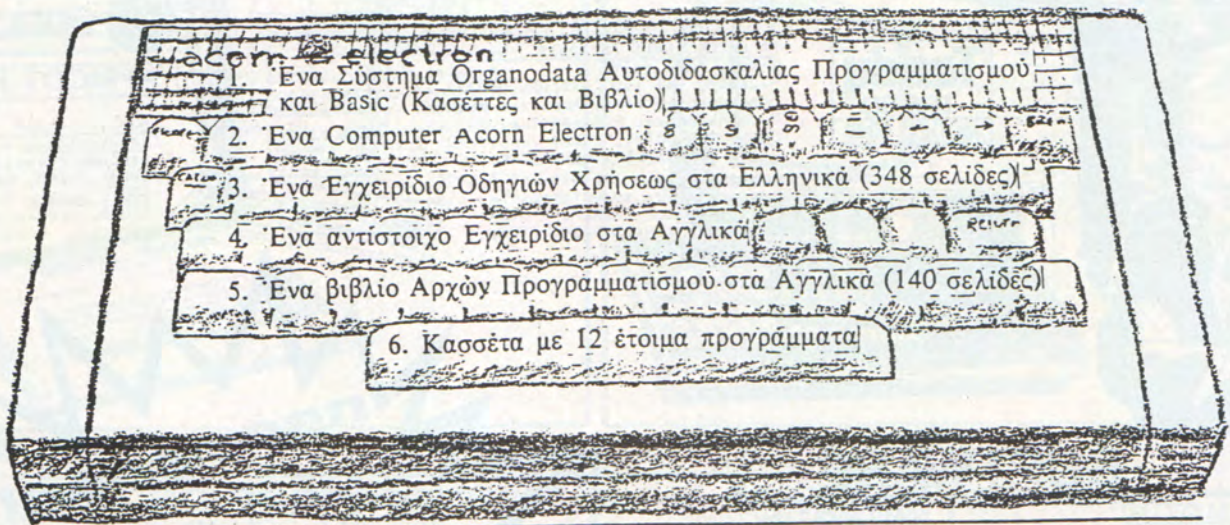 acorn electron
1. Ένα Σύστημα Organodata Αυτοδιδασκαλίας Προγραμματισμού
και Basic (Κασέττες και Βιβλίο)
2. Ένα Computer Acorn Electron
3. Ένα Εγχειρίδιο Οδηγιών Χρήσεως στα Ελληνικά (348 σελίδες)
4. Ένα αντίστοιχο Εγχειρίδιο στα Αγγλικά
5. Ένα βιβλίο Αρχών Προγραμματισμού στα Αγγλικά (140 σελίδες)
6. Κασσέτα με 12 έτοιμα προγράμματα